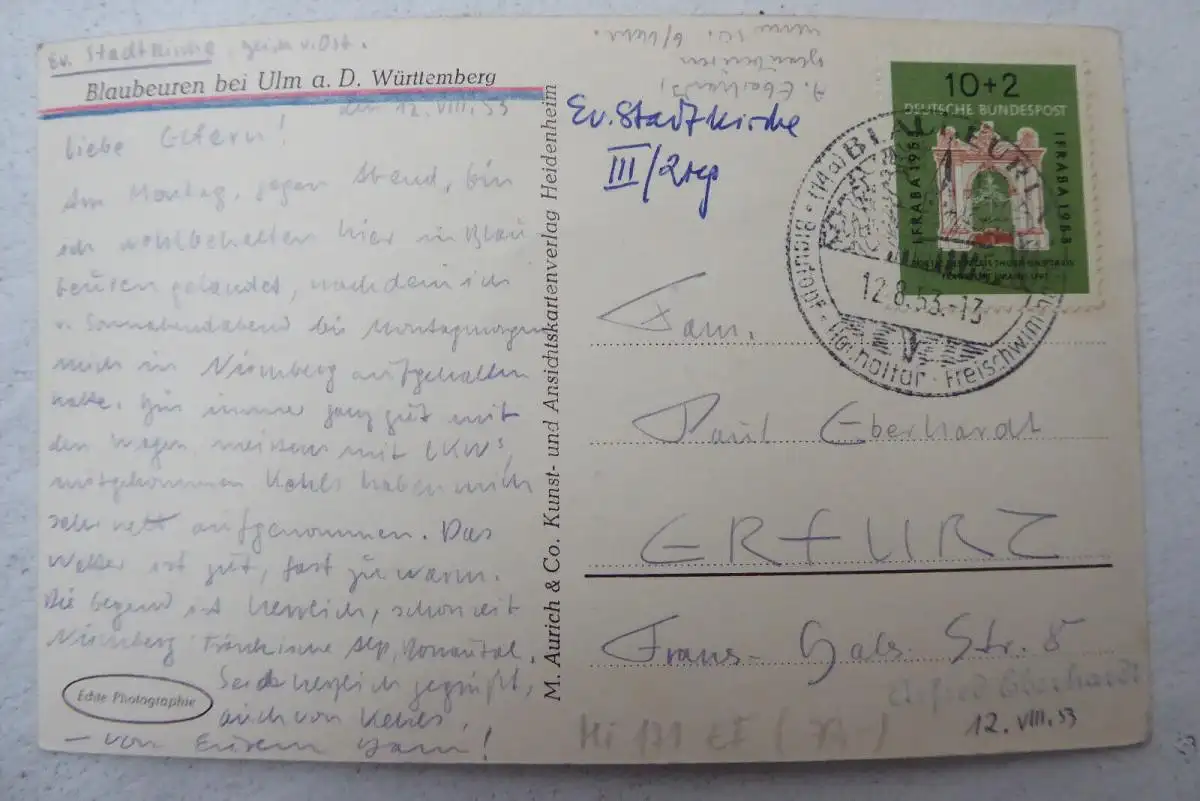 Ev. Stadtkirche, v. Ost.
Blaubeuren bei Ulm a. D. Württemberg
den 12. VIII. 53
Liebe Eltern!
Am Montag, gegen Abend, bin
ich wohlbehalten hier in Blau
beuren gelandet, nachdem ich
v. Sonnabendabend bis Montagmorgen
mich in Nürnberg aufgehalten
hatte. Bin immer ganz gut mit
den Wagen, meistens mit LKWs
mitgekommen. Kehls haben mich
sehr nett aufgenommen. Das
Wetter ist gut, fast zu warm.
Die Gegend ist herrlich, schon seit
Nürnberg Fränkische Alp, Donautal.
Seid herzlich gegrüßt,
auch von Kehls,
– von Eurem
Echte Photographie
M. Aurich & Co. Kunst- und Ansichtskartenverlag Heidenheim
A. Eberhardt,
Blaubeuren
Ev. Stadtkirche
III/2
10+2
DEUTSCHE BUNDESPOST
IFRABA 1953
IFRABA 1953
(14a) BLAUBEUREN
12.8.53.-13
Blautopf · Hochaltar · Freischwimm
Fam.
Paul Eberhardt
ERFURT
Frans-Hals-Str. 8
Alfred Eberhardt
12. VIII. 53
Mi 171 EF